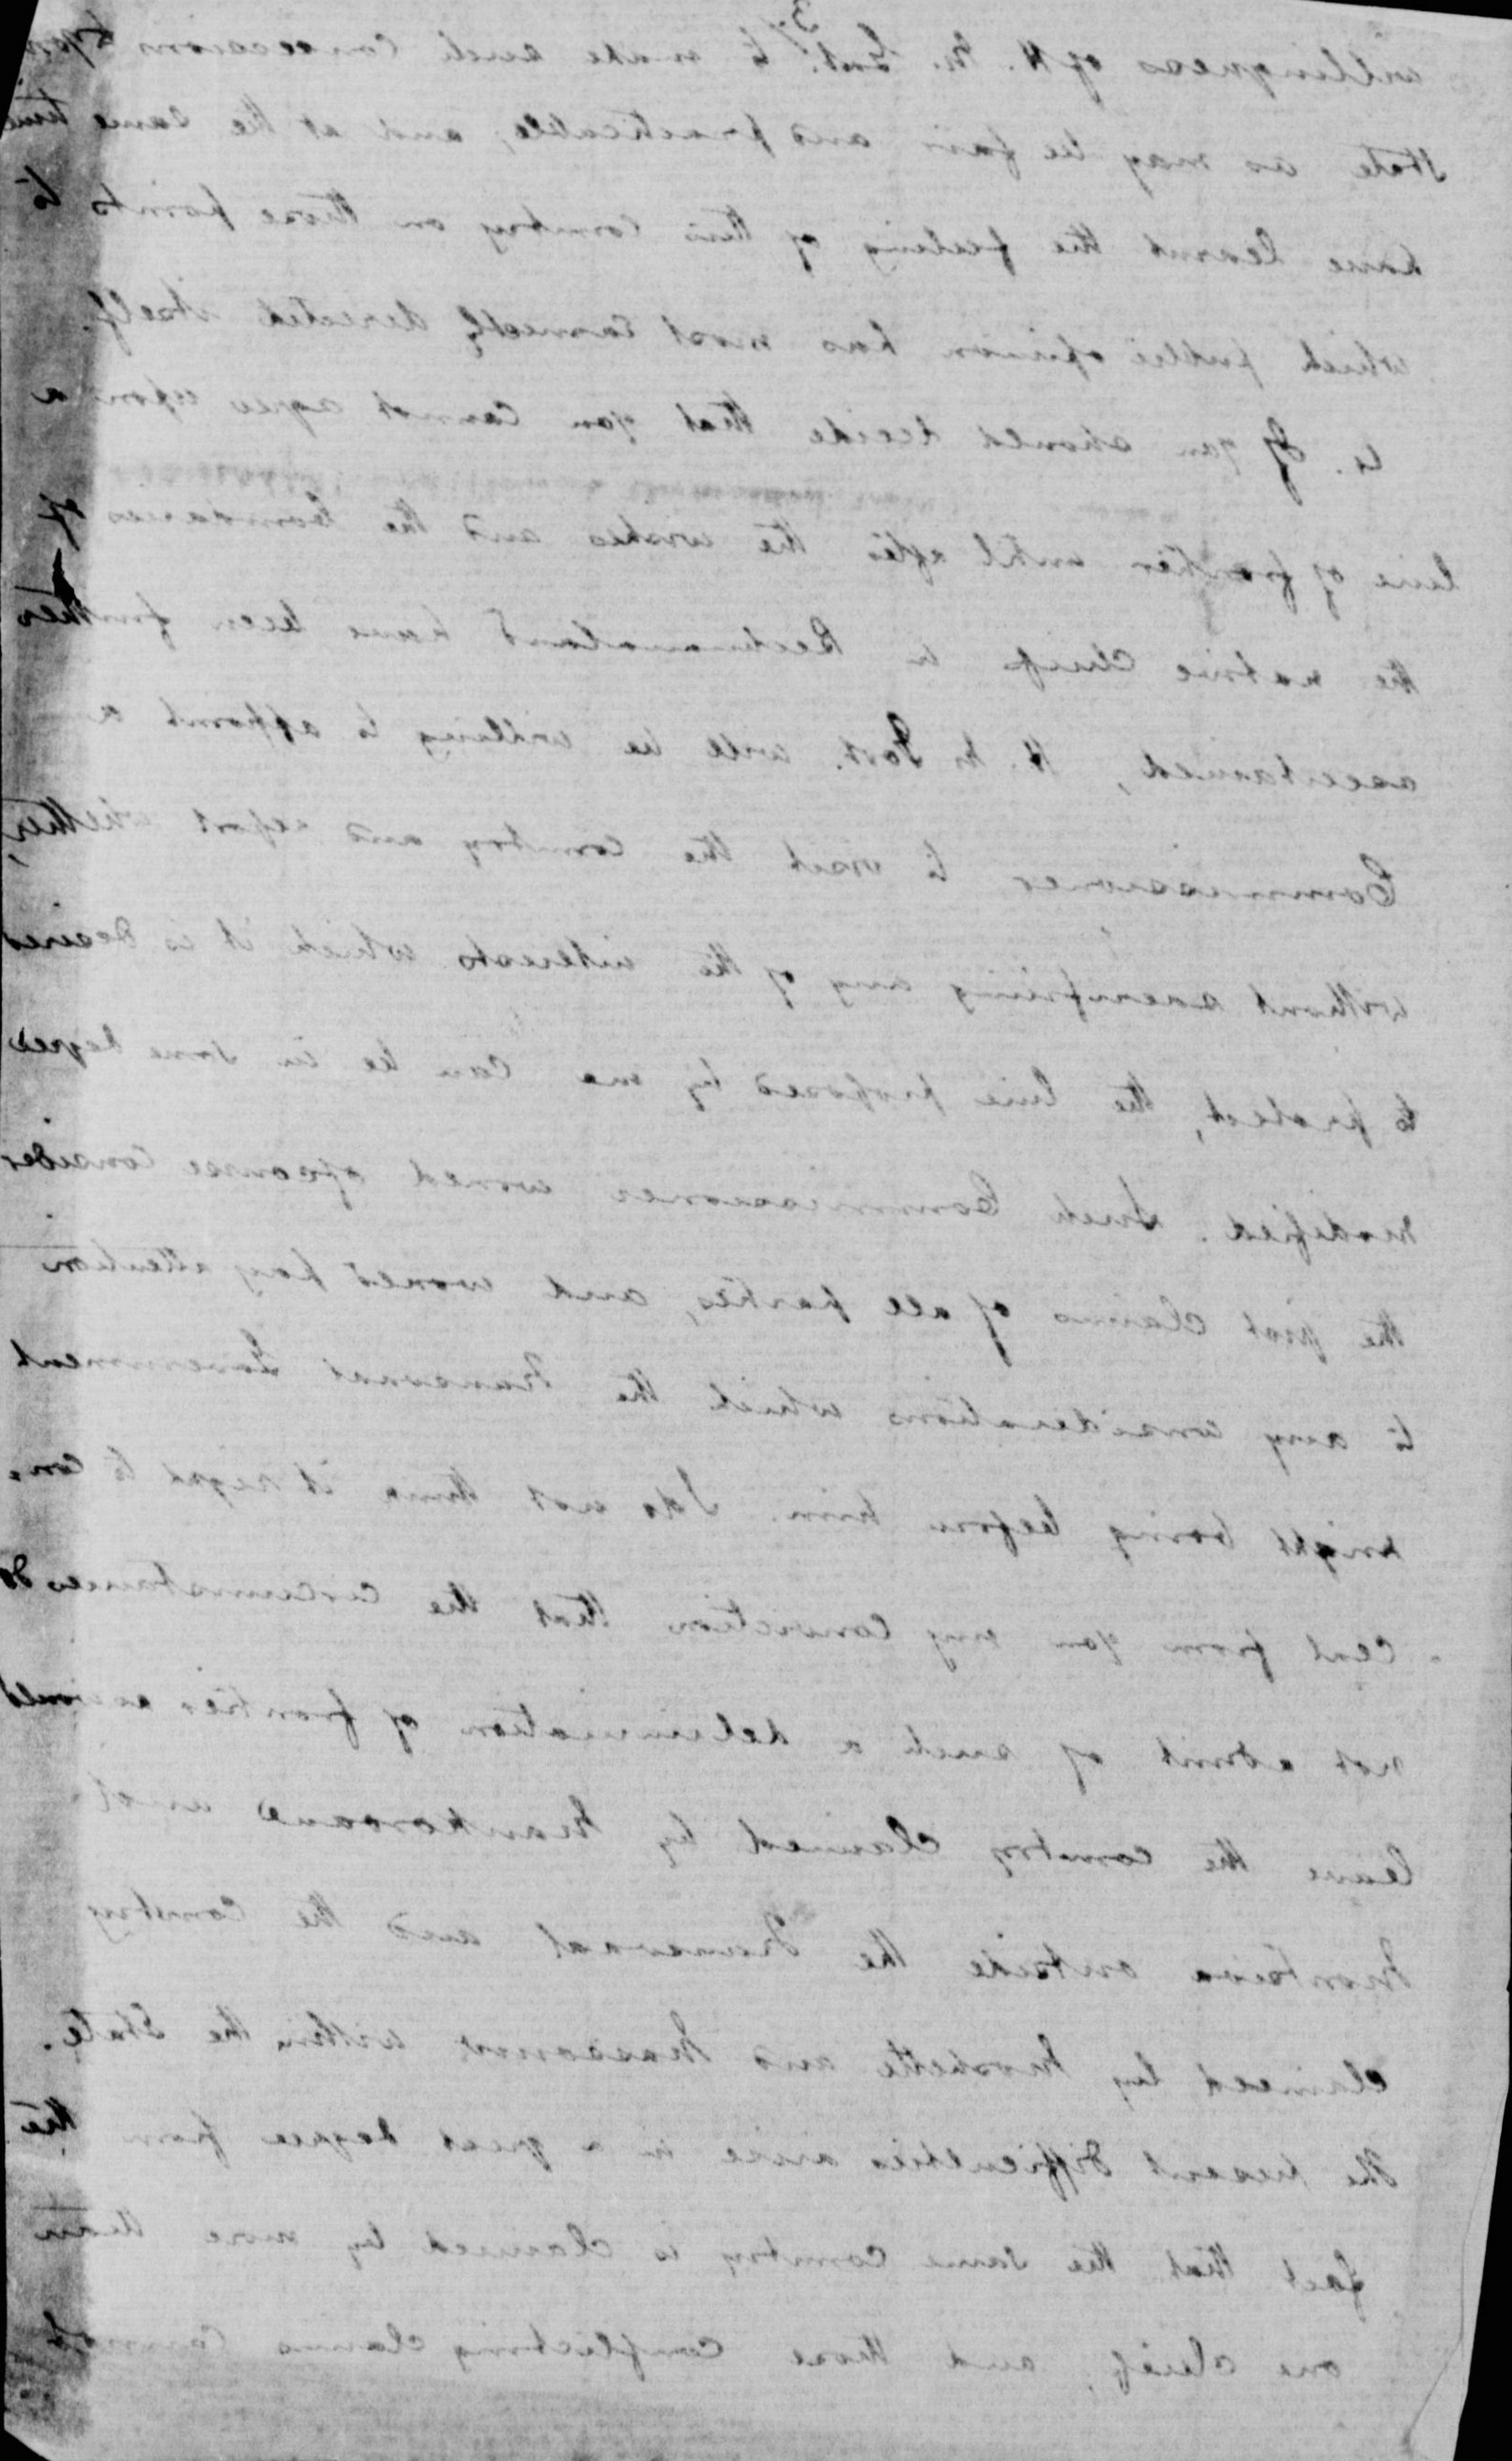 3.
willingness of H. M. Govt. to make such concessions to your
State as may be fair and practicable, and at the same time
have learnt the feeling of this country on those points to
which public opinion has most earnestly directed itself.
4. If you should decide that you cannot agree upon a
line of frontier until after the wishes and the boundaries of
the native Chiefs in Bechuanaland have been further
ascertained, H. M. Govt. will be willing to appoint a
Commissioner to visit the country and report whether,
without sacrificing any of the interests which it is desired
to protect, the line proposed by me can be in some degree
modified. Such Commissioner would of course consider
the just claims of all parties, and would pay attention
to any considerations which the Transvaal Government
might bring before him. I do not think it right to con-
-ceal from you my conviction that the circumstances do
not admit of such a delimitation of frontier as would
leave the country claimed by Mankoroane and
Montsioa outside the Transvaal and the country
claimed by Moshette and Massouw within the State.
The present difficulties arise in a great degree from the
fact that the same country is claimed by more than
one chief, and these conflicting claims cannot